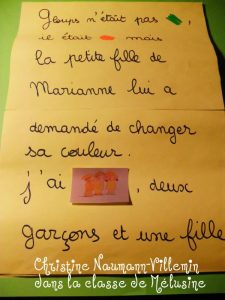 Gloups n'était pas ,
il était mais
la petite fille de
Marianne lui a
demandé de changer
sa couleur.
j'ai , deux
garçons et une fille
Christine Naumann-Villemin
dans la classe de Mélusine